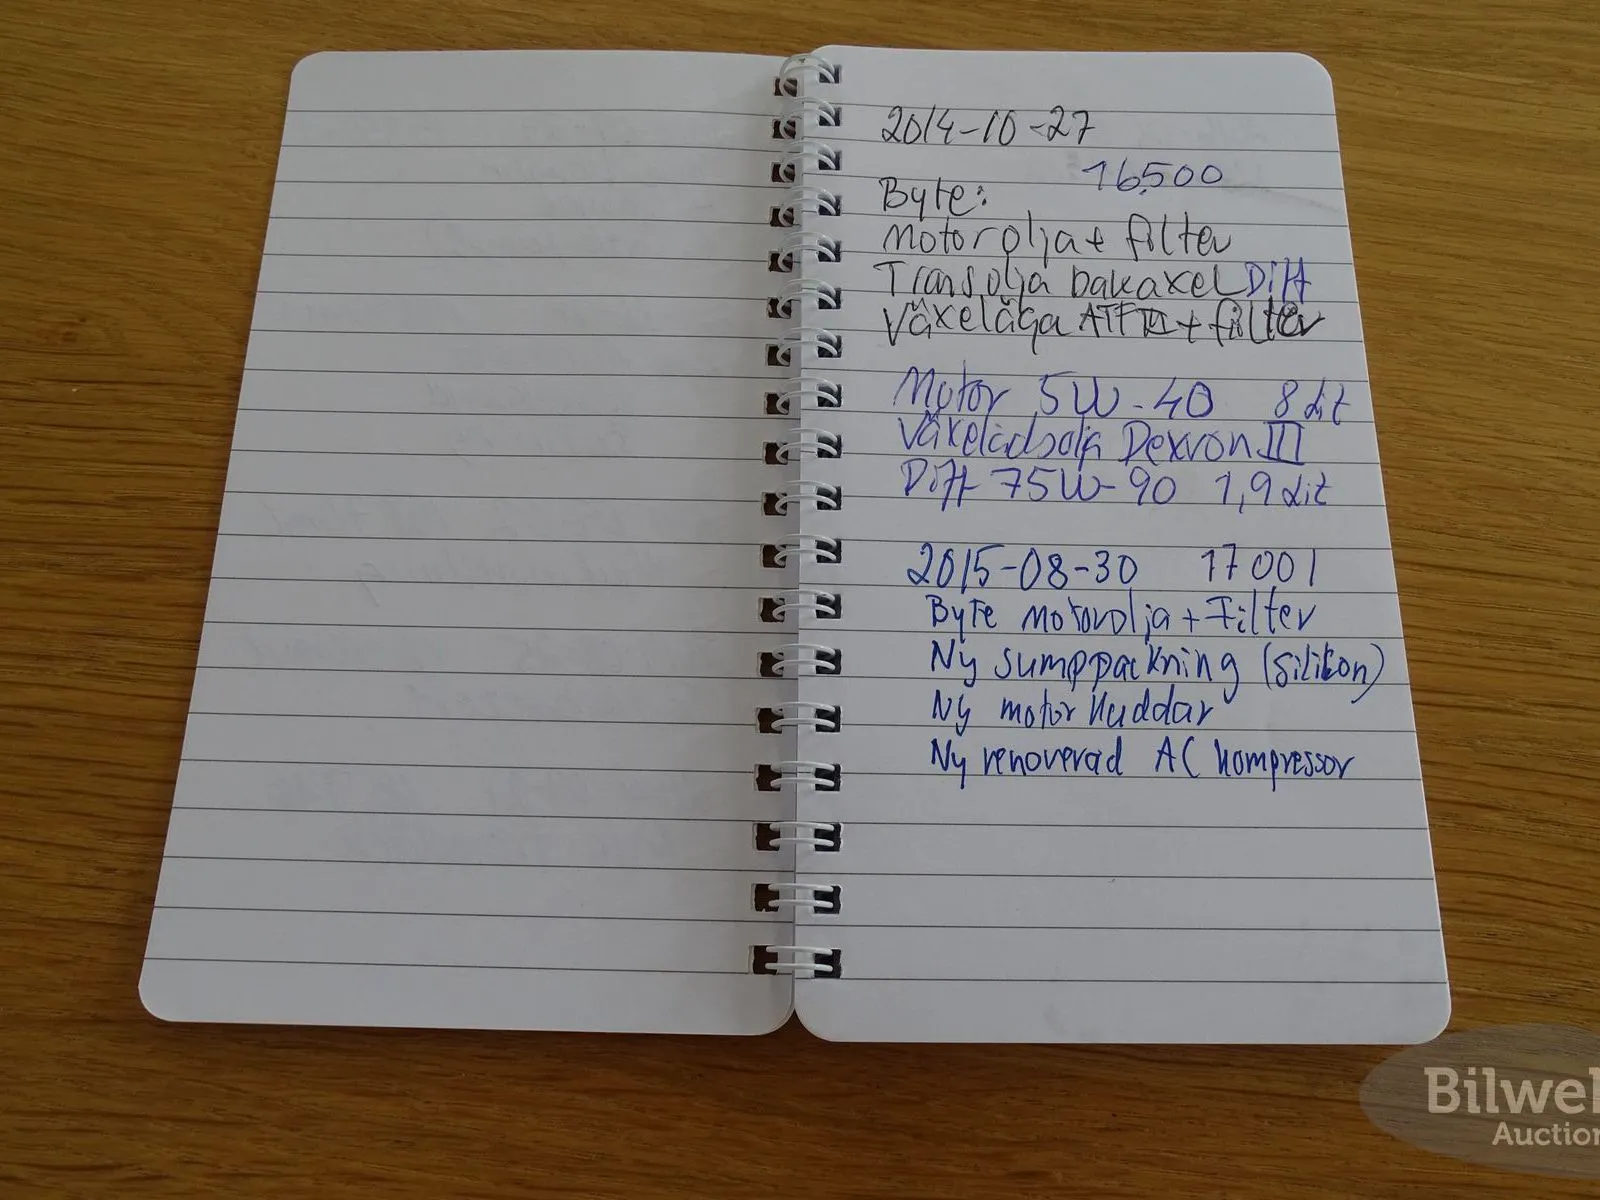 2014-10-27
16500
Byte:
Motorolja + filter
Transolja bakaxel Diff
Växelåga ATF III + filter
Motor 5W-40 8 Lit
Växelådsolja Dexron III
Diff 75W-90 1,9 Lit
2015-08-30 17001
Byte motorolja + Filter
Ny sumppackning (silikon)
Ny motor kuddar
Ny renoverad AC kompressor
Bilwe
Auction